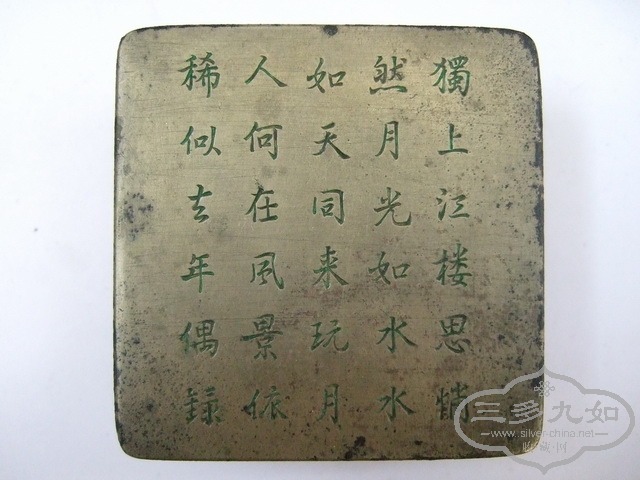 獨上江楼思悄
然月光如水水
如天同来玩月
人何在風景依
稀似去年偶録
三多九如
www.silver-china.net